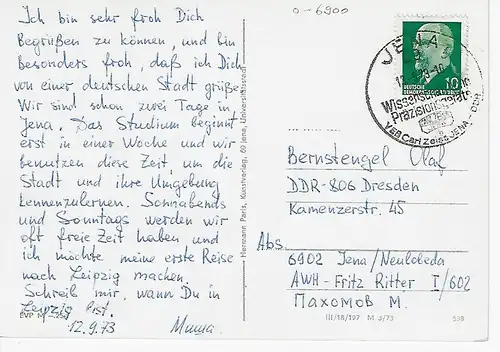 Ich bin sehr froh Dich
Begrüßen zu können, und bin
besonders froh, daß ich Dich
von einer deutschen Stadt grüße.
Wir sind schon zwei Tage in
Jena. Das Studium beginnt
erst in einer Woche und wir
benutzen diese Zeit, um die
Stadt und ihre Umgebung
kennenzulernen. Sonnabends
und Sonntags werden wir
oft freie Zeit haben und
ich möchte meine erste Reise
nach Leipzig machen.
Schreib mir, wann Du in
Leipzig bist.
12.9.73 Миша
EVP M
Hermann Paris, Kunstverlag, 69 Jena, Universitätsstraße
0-6900
JENA
Präzisionsgeräte
VEB Carl Zeiss JENA - DDR
10
DEUTSCHE
Bernstengel Olaf
DDR-806 Dresden
Kamenzerstr. 45
Abs.
6902 Jena/Neulobeda
AWH-Fritz Ritter I/602
Пахомов М.
III/18/197 M 3/73 538